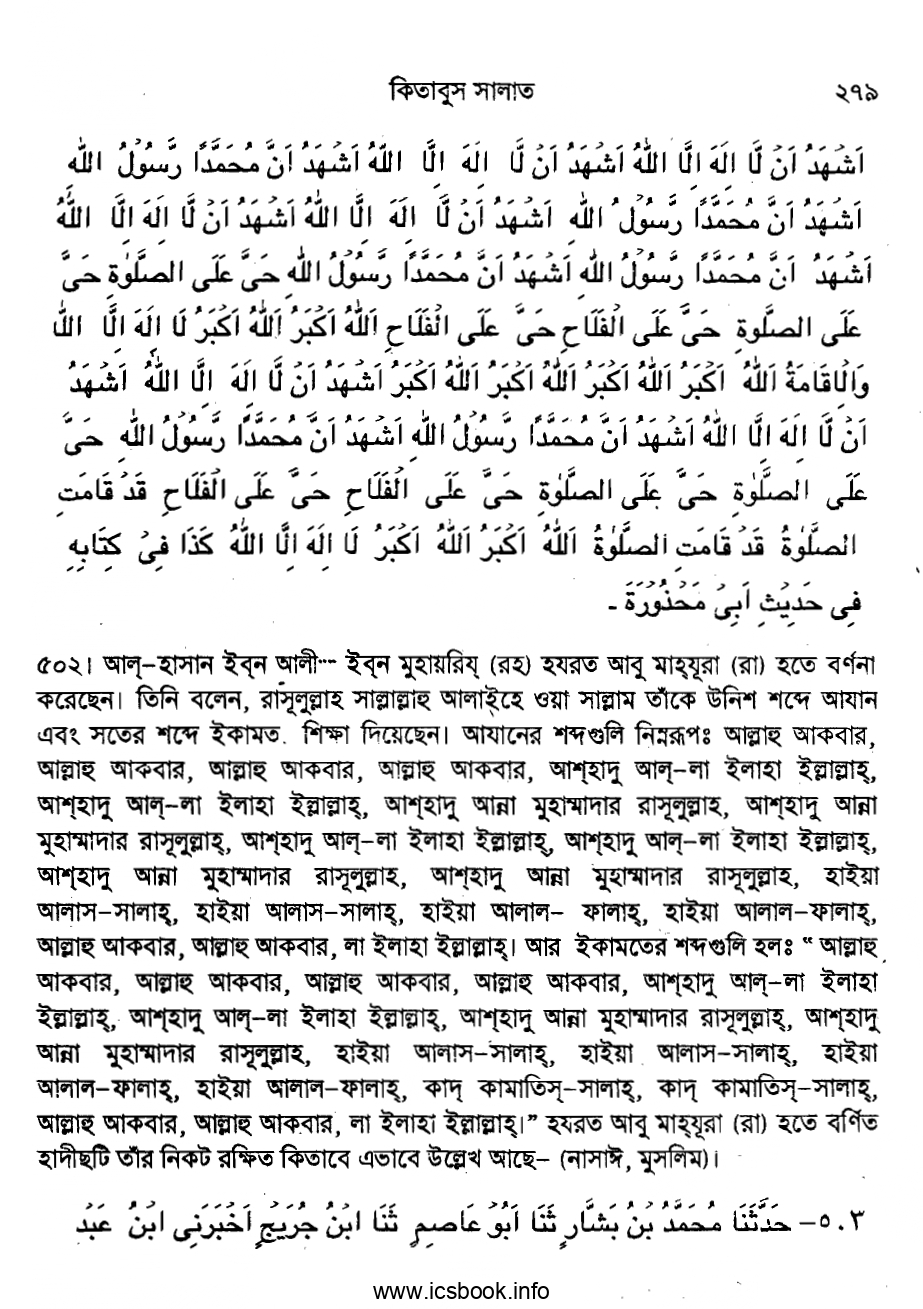 কিতাবুস সালাত ২৭৯
اَشْهَدُ اَنْ لَّا اِلٰهَ اِلَّا اللّٰهُ اَشْهَدُ اَنْ لَّا اِلَهَ اِلَّا اللّٰهُ اَشْهَدُ اَنَّ مُحَمَّدًا رَّسُوْلُ اللّٰه
اَشْهَدُ اَنَّ مُحَمَّدًا رَّسُوْلُ اللّٰهِ اَشْهَدُ اَنْ لَّا اِلَهَ اِلَّا اللّٰهُ اَشْهَدُ اَنْ لَّا اِلَهَ اِلَّا اللّٰهُ
اَشْهَدُ اَنَّ مُحَمَّدًا رَّسُوْلُ اللّٰهِ اَشْهَدُ اَنَّ مُحَمَّدًا رَّسُوْلُ اللّٰهِ حَىَّ عَلَى الصَّلٰوةِ حَىَّ
عَلَى الصَّلٰوةِ حَىَّ عَلَى الْفَلَاحِ حَىَّ عَلَى الْفَلَاحِ اَللّٰهُ اَكْبَرُ اَللّٰهُ اَكْبَرُ لَا اِلَهَ اِلَّا اللّٰهُ
وَالْاِقَامَةُ اَللّٰهُ اَكْبَرُ اَللّٰهُ اَكْبَرُ اَللّٰهُ اَكْبَرُ اَللّٰهُ اَكْبَرُ اَشْهَدُ اَنْ لَّا اِلَهَ اِلَّا اللّٰهُ اَشْهَدُ
اَنْ لَّا اِلَهَ اِلَّا اللّٰهُ اَشْهَدُ اَنَّ مُحَمَّدًا رَّسُوْلُ اللّٰهِ اَشْهَدُ اَنَّ مُحَمَّدًا رَّسُوْلُ اللّٰهِ حَىَّ
عَلَى الصَّلٰوةِ حَىَّ عَلَى الصَّلٰوةِ حَىَّ عَلَى الْفَلَاحِ حَىَّ عَلَى الْفَلَاحِ قَدْ قَامَتِ
الصَّلٰوةُ قَدْ قَامَتِ الصَّلٰوةُ اَللّٰهُ اَكْبَرُ اَللّٰهُ اَكْبَرُ لَا اِلَهَ اِلَّا اللّٰهُ كَذَا فِىْ كِتَابِهِ
فِى حَدِيْثِ اَبِىْ مَحْذُوْرَةَ -
৫০২। আল্-হাসান ইব্ন আলী... ইব্ন মুহায়রিয্ (রহ) হযরত আবু মাহ্যূরা (রা) হতে বর্ণনা
করেছেন। তিনি বলেন, রাসূলুল্লাহ সাল্লাল্লাহু আলাইহে ওয়া সাল্লাম তাঁকে উনিশ শব্দে আযান
এবং সতের শব্দে ইকামত. শিক্ষা দিয়েছেন। আযানের শব্দগুলি নিম্নরূপঃ আল্লাহু আকবার,
আল্লাহু আকবার, আল্লাহু আকবার, আল্লাহু আকবার, আশ্হাদু আল্-লা ইলাহা ইল্লাল্লাহ্,
আশ্হাদু আল্-লা ইলাহা ইল্লাল্লাহ্, আশ্হাদু আন্না মুহাম্মাদার রাসূলুল্লাহ, আশ্হাদু আন্না
মুহাম্মাদার রাসূলুল্লাহ্, আশ্হাদু আল্-লা ইলাহা ইল্লাল্লাহ্, আশ্হাদু আল্-লা ইলাহা ইল্লাল্লাহ্,
আশ্হাদু আন্না মুহাম্মাদার রাসূলুল্লাহ, আশ্হাদু আন্না মুহাম্মাদার রাসূলুল্লাহ, হাইয়া
আলাস-সালাহ্, হাইয়া আলাস-সালাহ্, হাইয়া আলাল- ফালাহ্, হাইয়া আলাল-ফালাহ্,
আল্লাহু আকবার, আল্লাহু আকবার, লা ইলাহা ইল্লাল্লাহ্। আর ইকামতের শব্দগুলি হলঃ “ আল্লাহু
আকবার, আল্লাহু আকবার, আল্লাহু আকবার, আল্লাহু আকবার, আশ্হাদু আল্-লা ইলাহা
ইল্লাল্লাহ্, আশ্হাদু আল্-লা ইলাহা ইল্লাল্লাহ্, আশ্হাদু আন্না মুহাম্মাদার রাসূলুল্লাহ, আশ্হাদু
আন্না মুহাম্মাদার রাসূলুল্লাহ, হাইয়া আলাস-সালাহ্, হাইয়া আলাস-সালাহ্, হাইয়া
আলাল-ফালাহ্, হাইয়া আলাল-ফালাহ্, কাদ্ কামাতিস্-সালাহ্, কাদ্ কামাতিস্-সালাহ্,
আল্লাহু আকবার, আল্লাহু আকবার, লা ইলাহা ইল্লাল্লাহ্।” হযরত আবু মাহ্যূরা (রা) হতে বর্ণিত
হাদীছটি তাঁর নিকট রক্ষিত কিতাবে এভাবে উল্লেখ আছে- (নাসাঈ, মুসলিম)।
٥.٣- حَدَّثَنَا مُحَمَّدُ بْنُ بَشَّارٍ ثَنَا اَبُوْ عَاصِمٍ ثَنَا ابْنُ جُرَيْجٍ اَخْبَرَنِى ابْنُ عَبْدِ
www.icsbook.info